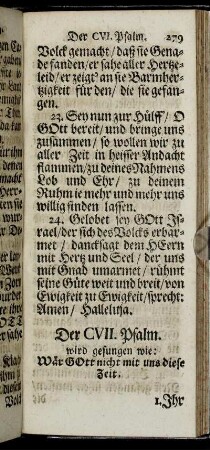 Der CVI. Psalm. 279
Volck gemacht / daß sie Gena-
de fanden / er sahe aller Hertze-
leid / er zeigt' an sie Barmher-
tzigkeit für den / die sie gefan-
gen.
23. Sey nun zur Hülff / O
GOtt bereit / und bringe uns
zusammen / so wollen wir zu
aller Zeit in heisser Andacht
flammen / zu deines Nahmens
Lob und Ehr / zu deinem
Ruhm ie mehr und mehr uns
willig finden lassen.
24. Gelobet sey GOtt Js-
rael / der sich des Volcks erbar-
met / dancksagt dem HErrn
mit Hertz und Seel / der uns
mit Gnad umarmet / rühmt
seine Güte weit und breit / von
Ewigkeit zu Ewigkeit / sprecht:
Amen / Halleluja.
Der CVII. Psalm.
wird gesungen wie:
Wär GOtt nicht mit uns diese
Zeit.
1. Jhr